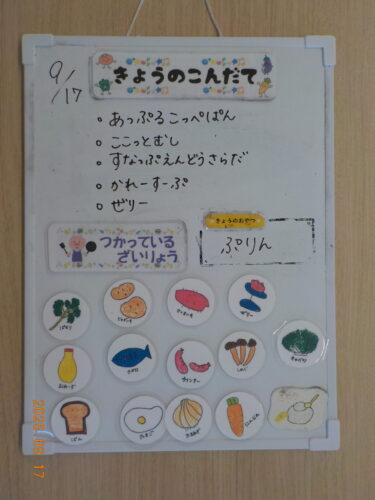 きょうのこんだて
9/17
。あっぷるこっぺぱん
。ここっとむし
。すなっぷえんどうさらだ
。かれーすーぷ
。ぜりー
きょうのおやつ
ぷりん
つかっている
ざいりょう
ぱせり
さつまいも
ゼリー
まよねーず
ウィンナー
しめじ
キャベツ
ぱん
たまご
たまねぎ
にんじん
2025 09 17